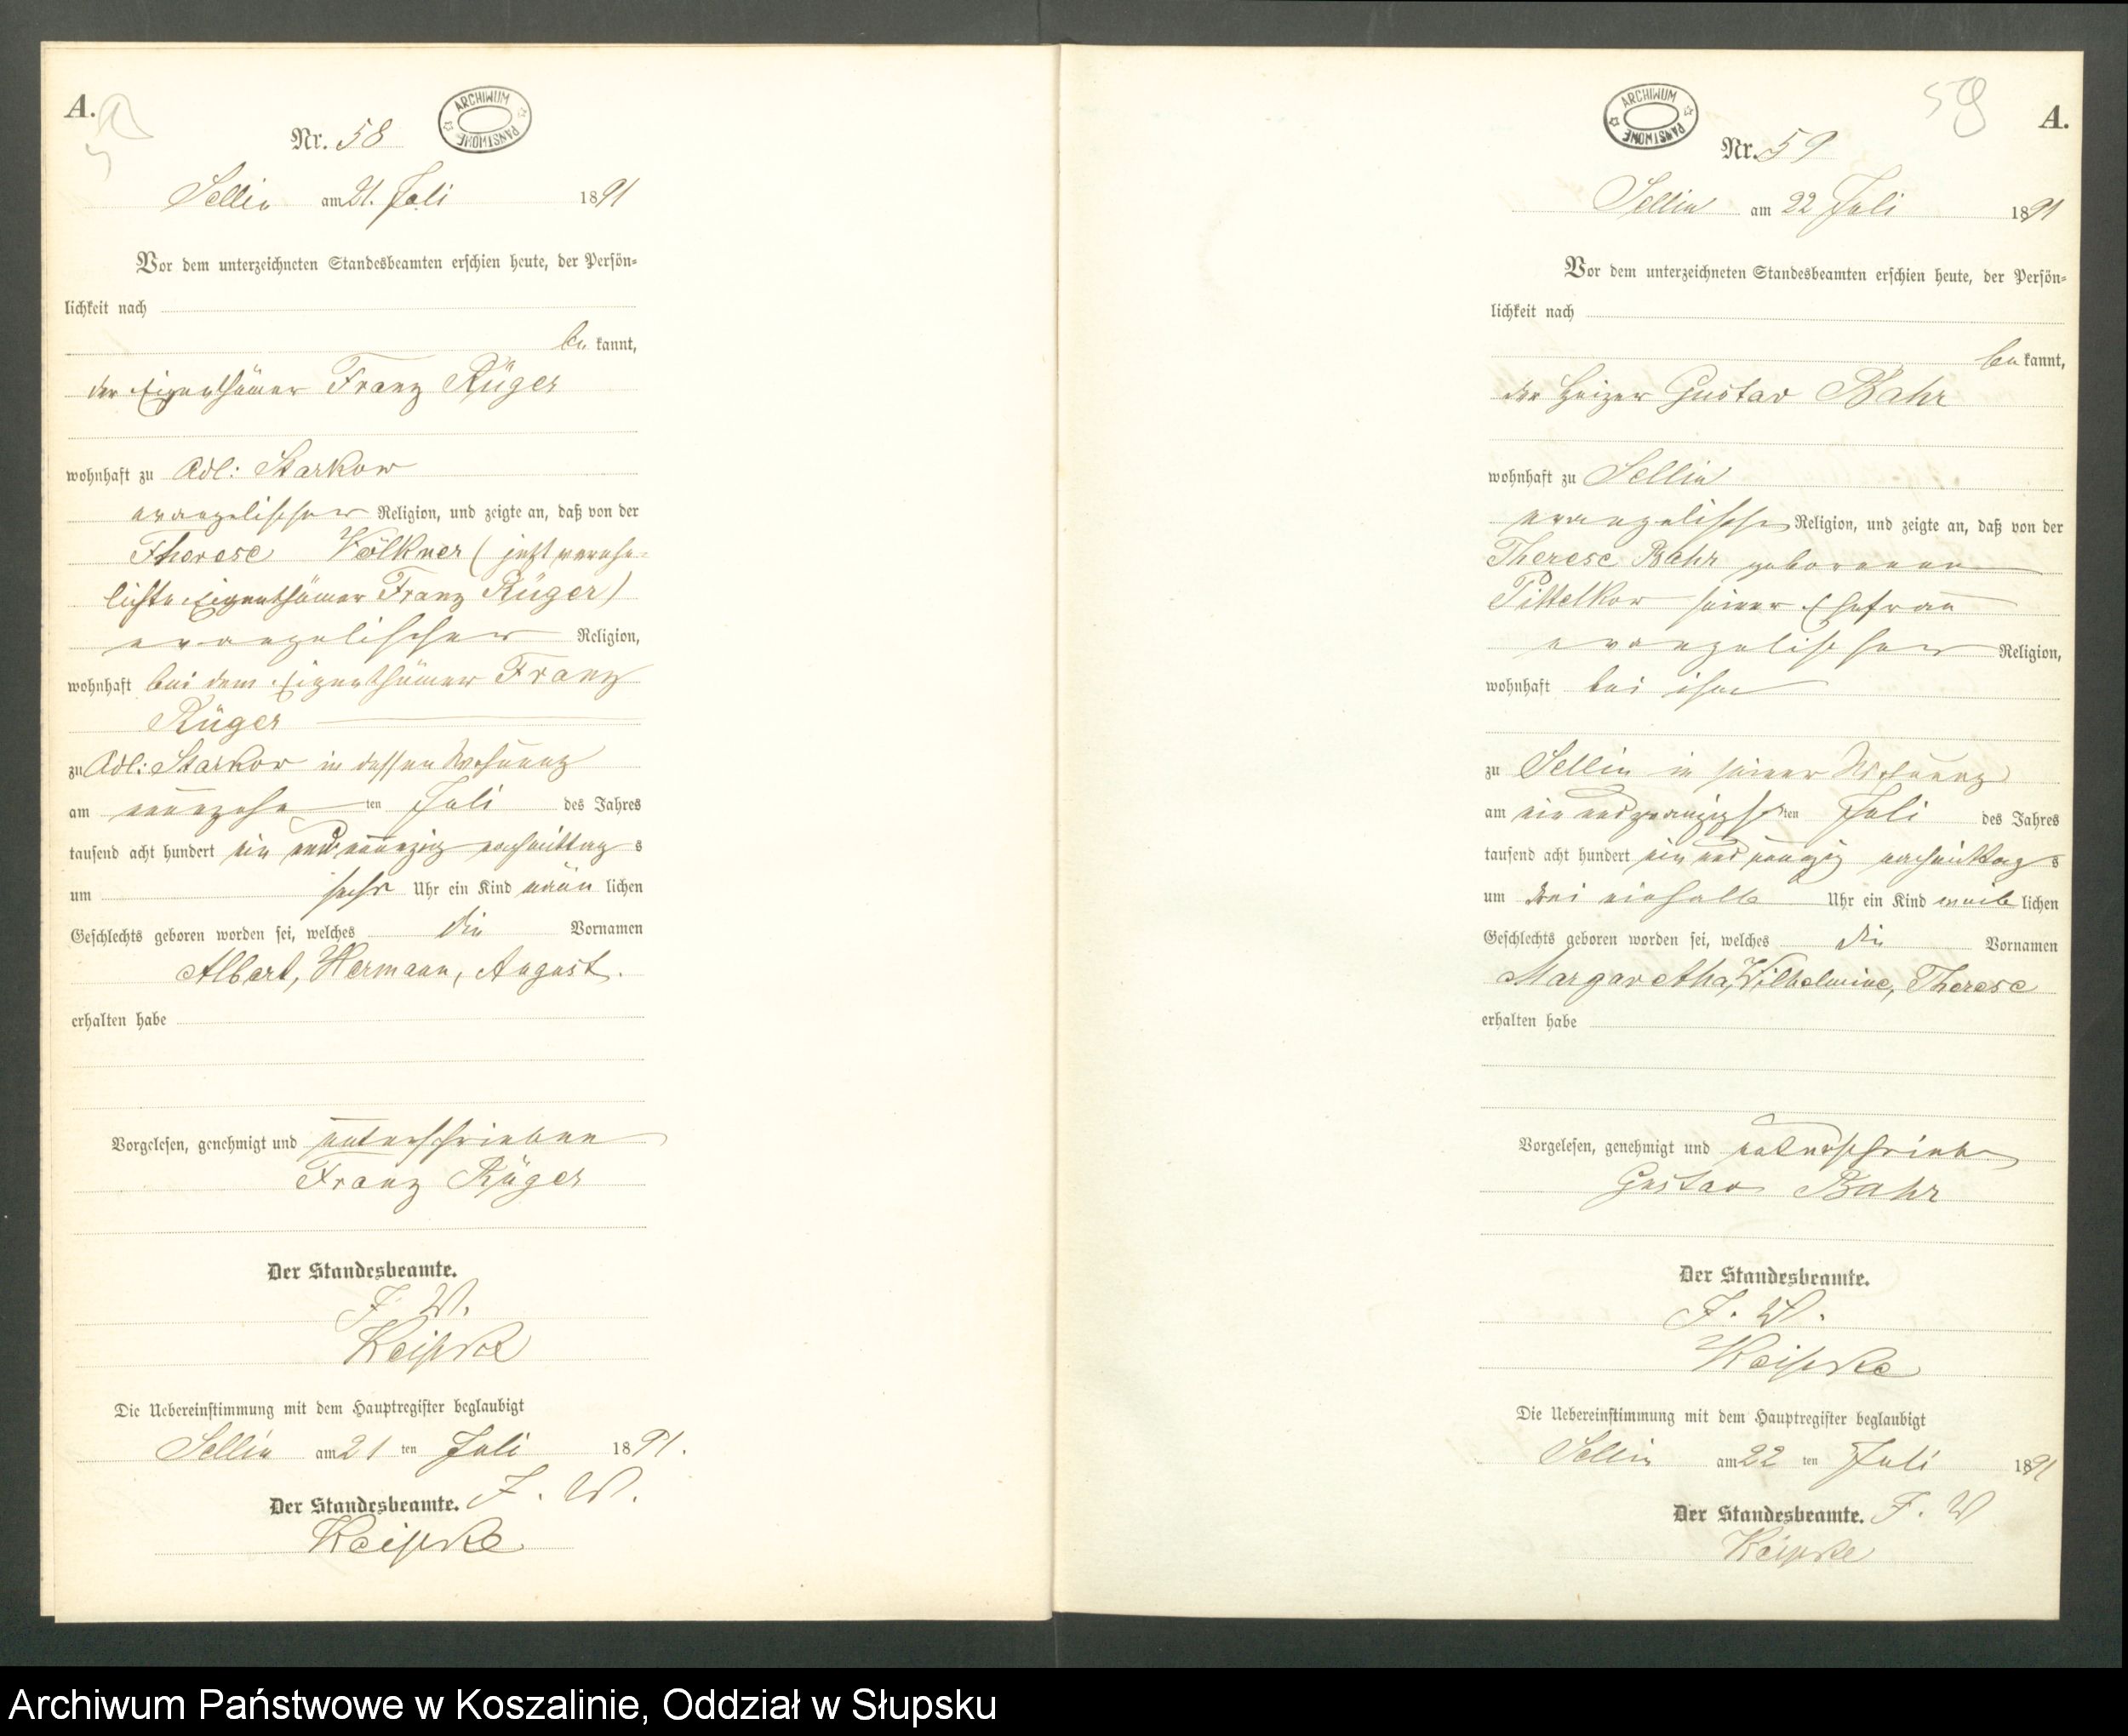 A.
ARCHIWUM PAŃSTWOWE
Nr. 58
Sellin am 21. Juli 1891
Vor dem unterzeichneten Standesbeamten erschien heute, der Persön-
lichkeit nach
be kannt,
der Eigenthümer Franz Rüger
wohnhaft zu Adl: Starkow
evangelischer Religion, und zeigte an, daß von der
Therese Völkner (jetzt verehe-
lichte Eigenthümer Franz Rüger)
evangelischer Religion,
wohnhaft bei dem Eigenthümer Franz
Rüger
zu Adl: Starkow in dessen Wohnung
am neunzehn ten Juli des Jahres
tausend acht hundert ein und neunzig nachmittag s
um sechs Uhr ein Kind männ lichen
Geschlechts geboren worden sei, welches die Vornamen
Albert, Hermann, August.
erhalten habe
Vorgelesen, genehmigt und unterschrieben
Franz Rüger
Der Standesbeamte.
J. V.
Keipke
Die Uebereinstimmung mit dem Hauptregister beglaubigt
Sellin am 21 ten Juli 1891.
Der Standesbeamte. J. V.
Keipke
59
A.
ARCHIWUM PAŃSTWOWE
Nr. 59
Sellin am 22 Juli 1891
Vor dem unterzeichneten Standesbeamten erschien heute, der Persön-
lichkeit nach
be kannt,
der Heizer Gustav Bahr
wohnhaft zu Sellin
evangelischer Religion, und zeigte an, daß von der
Therese Bahr geborenen
Pittelkow seiner Ehefrau
evangelischer Religion,
wohnhaft bei ihm
zu Sellin in seiner Wohnung
am ein und zwanzigsten Juli des Jahres
tausend acht hundert ein und neunzig nachmittag s
um drei einhalb Uhr ein Kind weib lichen
Geschlechts geboren worden sei, welches die Vornamen
Margaretha, Wilhelmine, Therese
erhalten habe
Vorgelesen, genehmigt und unterschrieben
Gustav Bahr
Der Standesbeamte.
J. V.
Keipke
Die Uebereinstimmung mit dem Hauptregister beglaubigt
Sellin am 22 ten Juli 1891
Der Standesbeamte. J. V
Keipke
Archiwum Państwowe w Koszalinie, Oddział w Słupsku